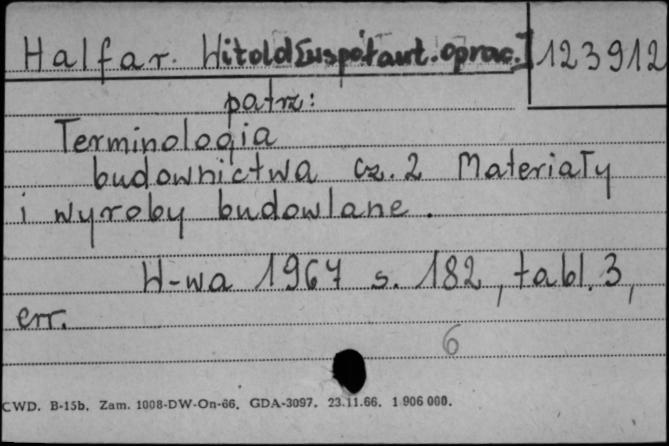 Halfar. Witold [współaut. oprac.] 123912
patrz:
Terminologia
budownictwa cz. 2 Materiały
i wyroby budowlane.
W-wa 1967 s. 182, tabl. 3,
err.
6
CWD. B-15b. Zam. 1008-DW-On-66. GDA-3097. 23.11.66. 1 906 000.